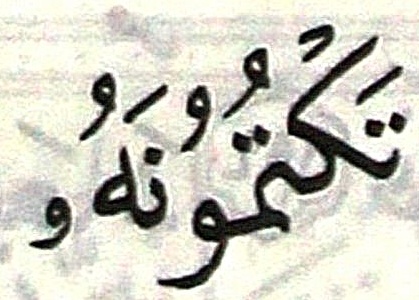 تَكْتُمُونَهُۥ